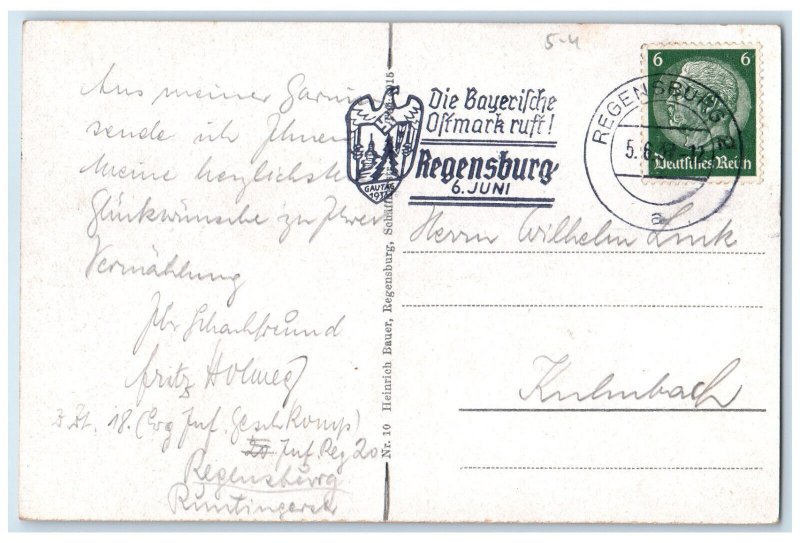 5-4
Aus meiner Garni
sende ich Ihnen
meine herzlichste
Glückwünsche zu Ihrer
Vermählung
Ihr Schachfreund
Fritz Holweg
z. Zt. 18. (Erg Inf. Gesch Komp)
Inf. Reg 20
Regensburg
Nr. 10 Heinrich Bauer, Regensburg,
Die Bayerische
Ostmark ruft!
Regensburg
6. JUNI
GAUTAG
1937
REGENSBURG 2
5.6.
a
6 6
Deutsches Reich
Herrn Wilhelm Link
Kulmbach